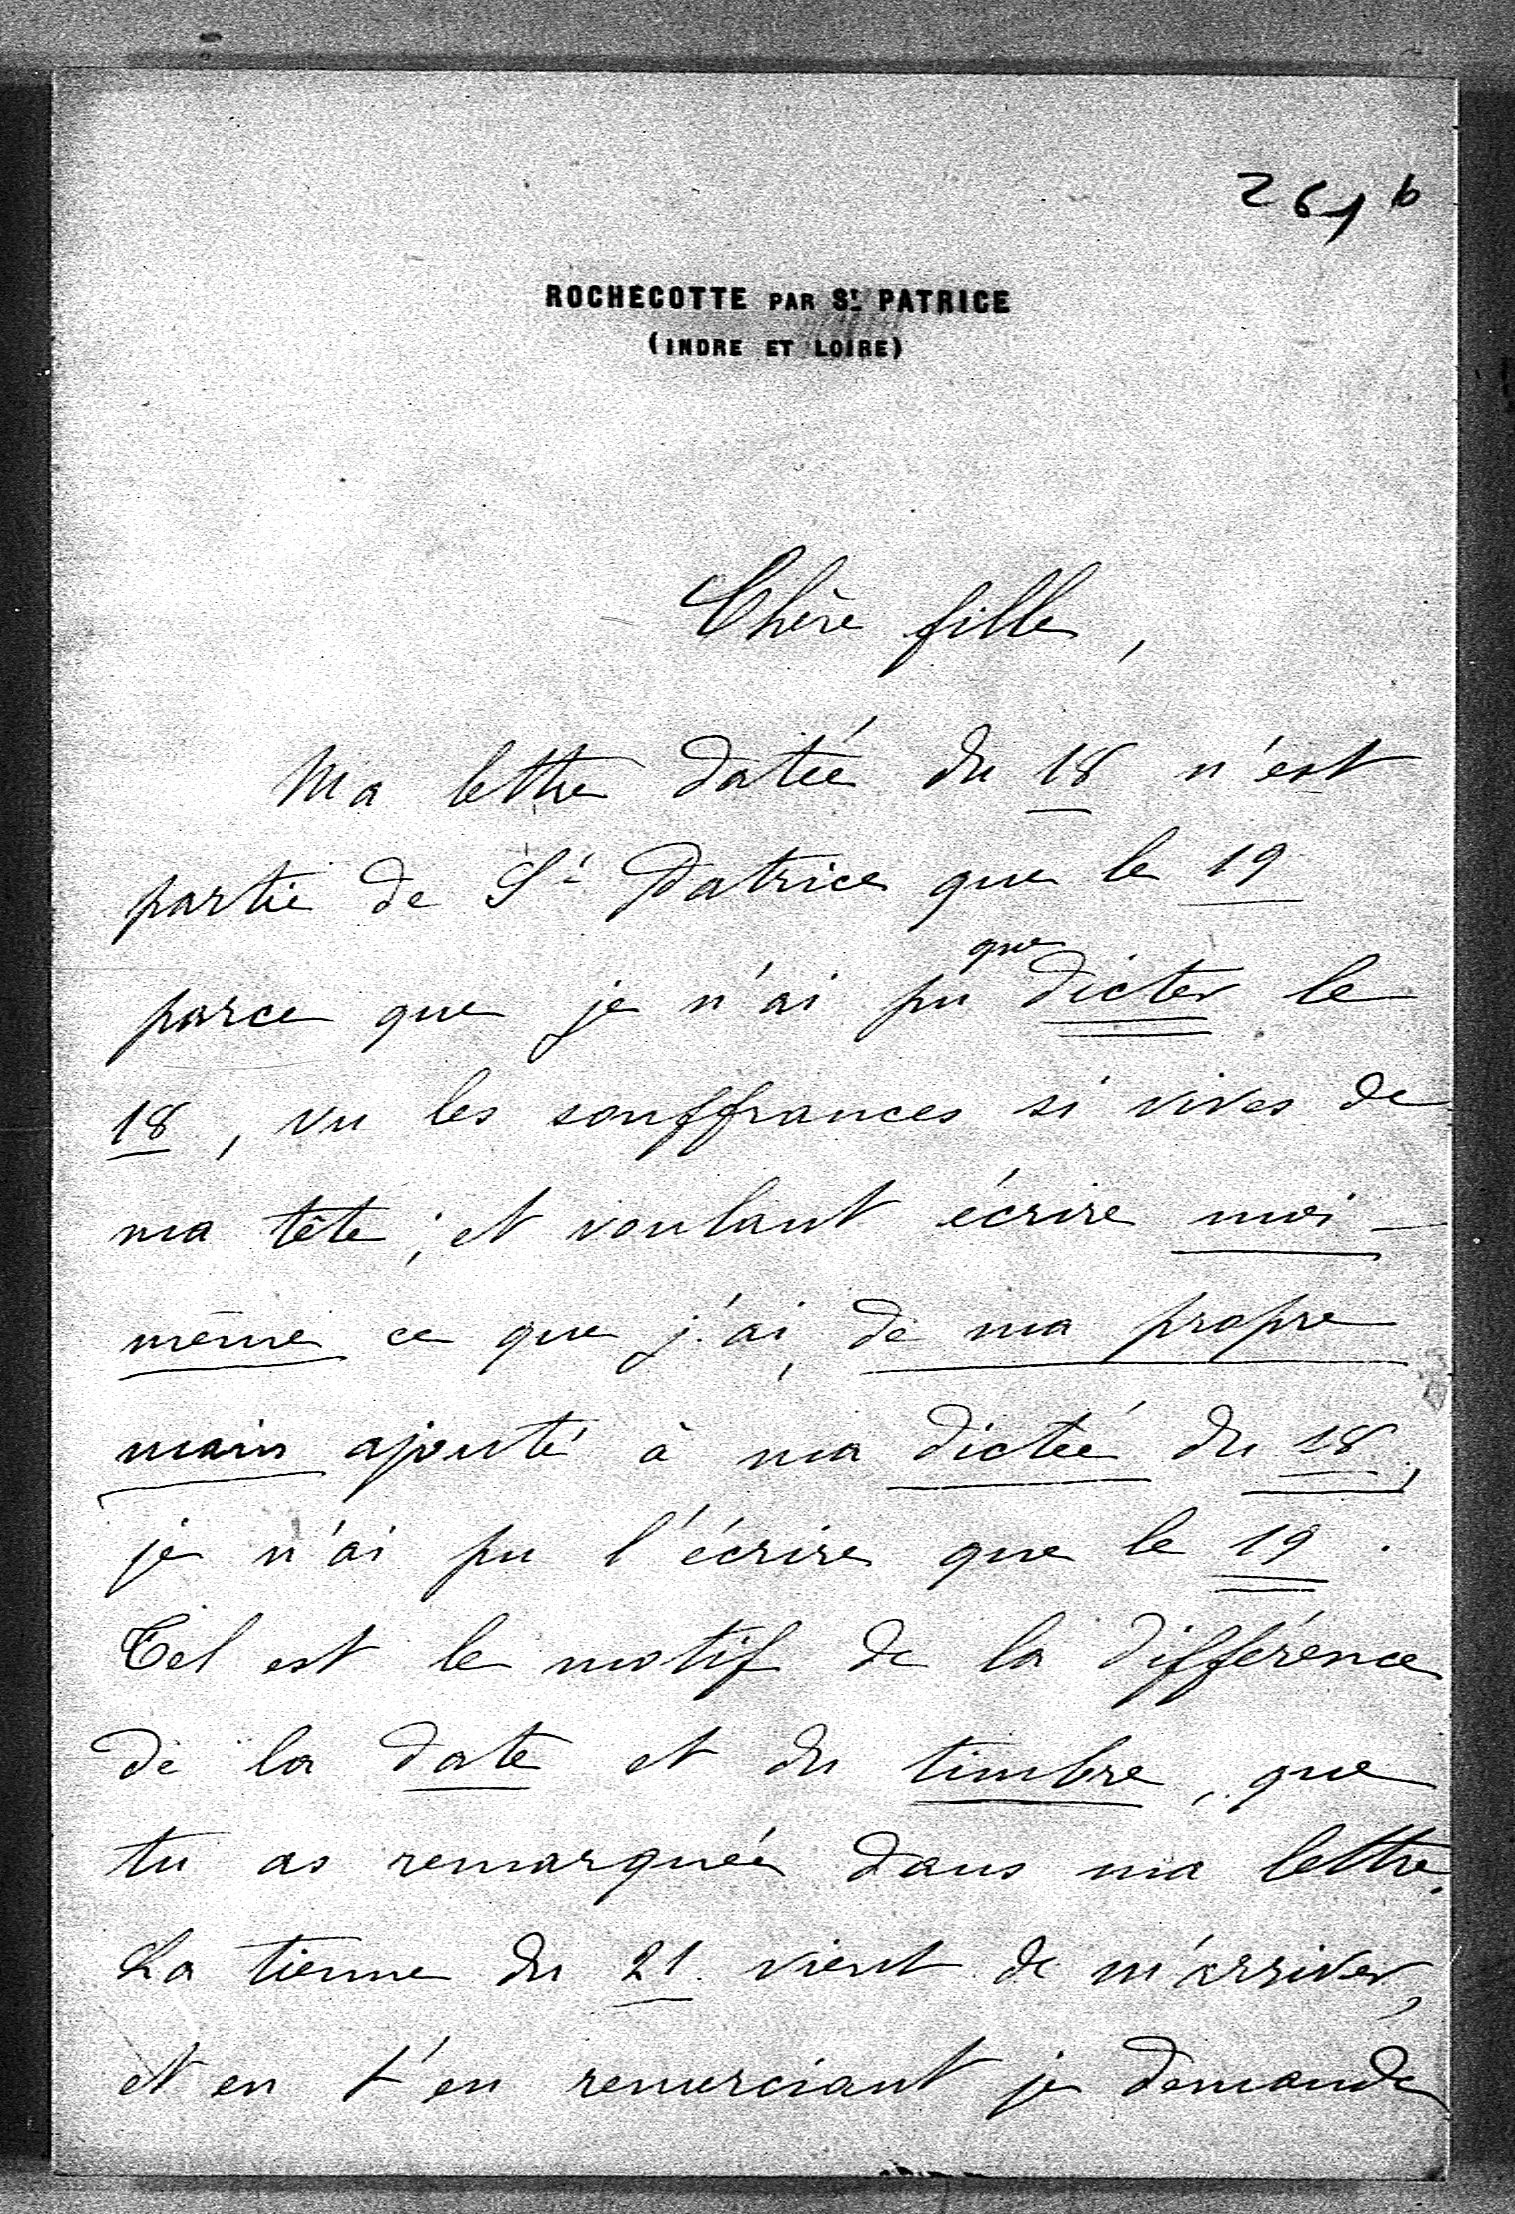 261 b
ROCHECOTTE PAR St PATRICE
(INDRE ET LOIRE)
Chère fille,
Ma lettre datée du 18 n'est
partie de St Patrice que le 19
parce que je n'ai pu que dicter le
18, vu les souffrances si vives de
ma tête; et voulant écrire moi-
même ce que j'ai, de ma propre
main ajouté à ma dictée du 18,
je n'ai pu l'écrire que le 19.
Tel est le motif de la différence
de la date et du timbre, que
tu as remarquée dans ma lettre.
La tienne du 21 vient de m'arriver,
et en t'en remerciant je demande